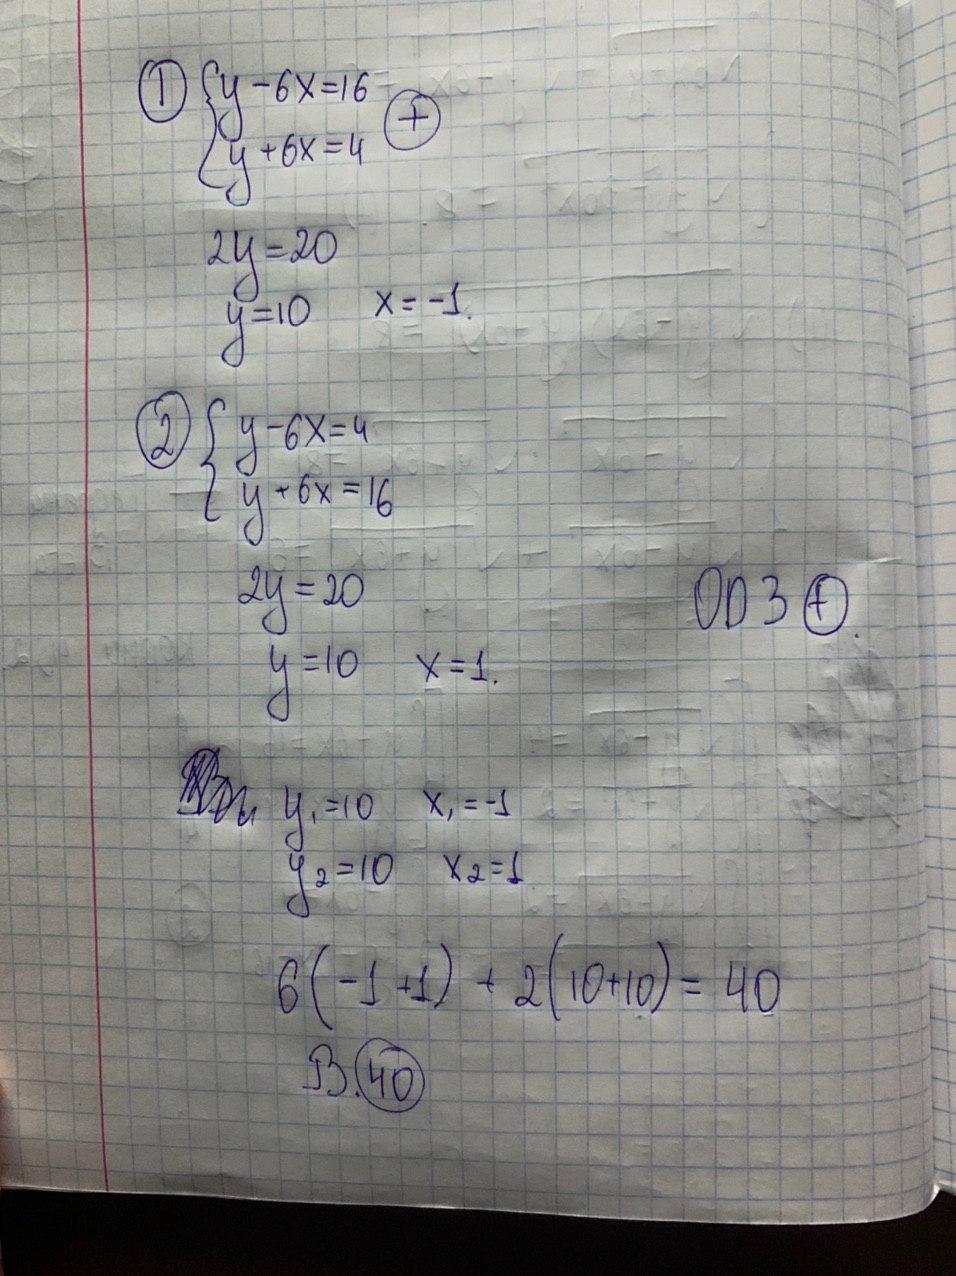 ① { y - 6x = 16
y + 6x = 4 ⊕
2y = 20
y = 10 x = -1.
② { y - 6x = 4
y + 6x = 16
2y = 20
ОДЗ ⊕.
y = 10 x = 1.
y₁ = 10 x₁ = -1
y₂ = 10 x₂ = 1
6(-1+1) + 2(10+10) = 40
В. 40